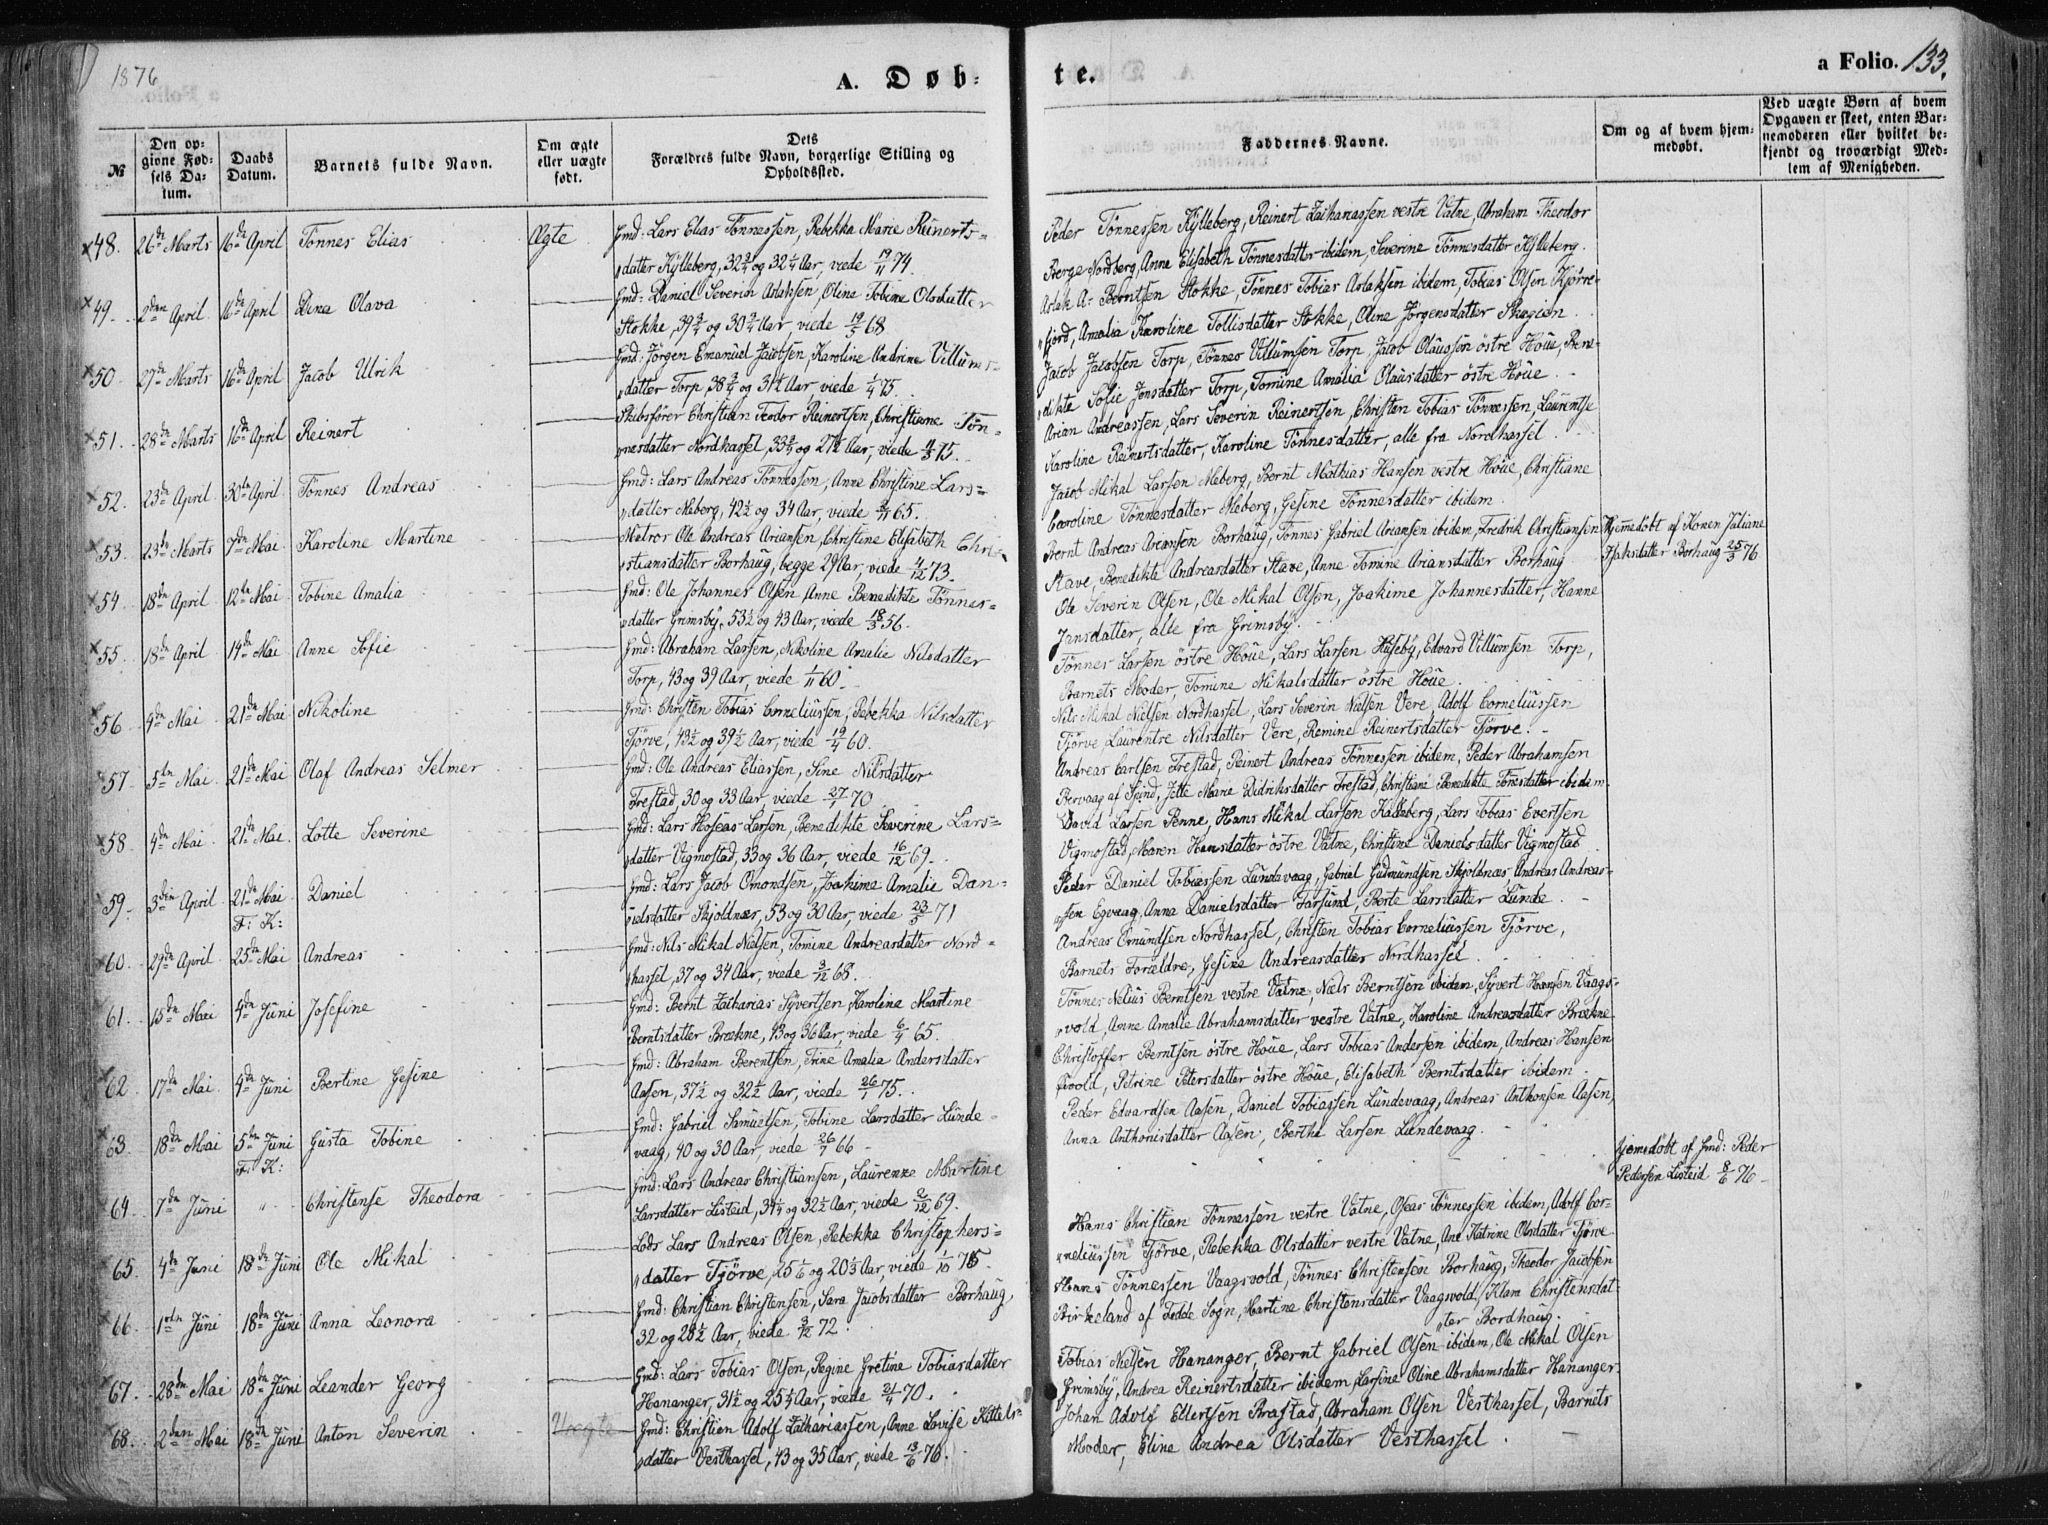 1876
A. Døb-
№
Den op-
givne Fød-
sels Da-
tum.
Daabs
Datum.
Barnets fulde Navn.
Om ægte
eller uægte
født.
Dets
Forældres fulde Navn, borgerlige Stilling og
Opholdssted.
48. 26de Marts 16de April Tönnes Elias Ægte Gmd: Lars Elias Tönnessen, Rebekka Marie Reinerts-
datter Kylleberg, 32 3/4 og 32 1/4 Aar, viede 19/11 74.
49. 2den April 16de April Dina Olava Gmd: Daniel Severin Aslaksen, Olina Tobine Olsdatter
Stokke, 39 3/4 og 30 3/4 Aar, viede 19/5 68
50. 27de Marts 16de April Jacob Ulrik Gmd: Jörgen Emanuel Jacobsen, Karoline Andrine Villums-
datter Torp, 38 3/4 og 31 1/2 Aar, viede 1/4 75.
51. 28de Marts 16de April Reinert Skibsförer Christian Teodor Reinertsen, Christiane Tön-
nesdatter Nordhassel, 33 3/4 og 27 1/2 Aar, viede 4/3 75.
52. 23de April 30te April Tönnes Andreas Gmd: Lars Andreas Tönnessen, Anne Christine Lars-
datter Meberg, 42 1/2 og 34 Aar, viede 2/11 65.
53. 23de Marts 7de Mai Karoline Martine Matros Ole Andreas Ariansen, Christine Elisabeth Chri-
stiansdatter Borhaug, begge 29 Aar, viede 4/12 73.
54. 18de April 12te Mai Tobine Amalia Gmd: Ole Johannes Olsen, Anne Benedikte Tönnes-
datter Grimsby, 53 1/2 og 43 Aar, viede 18/3 56.
55. 18de April 14de Mai Anne Sofie Gmd: Abraham Larsen, Nikoline Amalie Nilsdatter
Torp, 43 og 39 Aar, viede 1/11 60.
56. 9de Mai 21de Mai Nikoline Gmd: Christen Tobias Corneliussen, Rebekka Nilsdatter
Tjörve, 43 1/2 og 39 1/2 Aar, viede 19/4 60.
57. 5te Mai 21de Mai Olaf Andreas Selmer Gmd: Ole Andreas Eliassen, Sine Nilsdatter
Frestad, 30 og 33 Aar, viede 27/1 70
58. 4de Mai 21de Mai Lotte Severine Gmd: Lars Hoseas Larsen, Benedikte Severine Lars-
datter Vigmostad, 33 og 36 Aar, viede 16/12 69.
59. 3die April 21de Mai Daniel Gmd: Lars Jacob Omondsen, Joakime Amalie Dan-
F: K: ielsdatter Skjoldnæs, 53 og 30 Aar, viede 23/5 71
60. 29de April 25de Mai Andreas Gmd: Nils Mikal Nielsen, Tomine Andreasdatter Nord-
hassel, 37 og 34 Aar, viede 3/12 68.
61. 15de Mai 4de Juni Josefine Gmd: Bernt Zacharias Syvertsen, Karoline Martine
Berntsdatter Brekne, 43 og 36 Aar, viede 6/4 65.
62. 17de Mai 4de Juni Bertine Gesine Gmd: Abraham Berentsen, Trine Amalia Andersdatter
Aasen, 37 1/2 og 32 1/2 Aar, viede 26/1 75.
63. 18de Mai 5te Juni Gusta Tobine Gmd: Gabriel Samuelsen, Tobine Larsdatter Lunde-
F: K: vaag, 40 og 30 Aar, viede 26/7 66
64. 7de Juni " Christense Theodora Gmd: Lars Andreas Christiansen, Laurenze Martine
Larsdatter Listeid, 34 1/4 og 32 1/2 Aar, viede 2/12 69.
65. 4de Juni 18de Juni Ole Mikal Lods Lars Andreas Olsen, Rebekka Christophers-
datter Tjörve, 25 1/6 og 20 1/3 Aar, viede 1/10 75.
66. 1ste Juni 18de Juni Anna Leonora Gmd: Christian Christensen, Sara Jacobsdatter Borhaug,
32 og 28 1/2 Aar, viede 3/12 72.
67. 28de Mai 18de Juni Leander Georg Gmd: Lars Tobias Olsen, Regine Gretine Tobiasdatter
Hananger, 31 1/2 og 25 1/4 Aar, viede 2/4 70.
68. 2den Mai 18de Juni Anton Severin Uægte Gmd: Christian Adolf Zachariassen, Anne Lovise Kittels-
datter Vesthassel, 43 og 35 Aar, viede 13/6 76.
te.
a Folio. 133.
Faddernes Navne.
Om og af hvem hjem-
medøbt.
Ved uægte Børn af hvem
Opgaven er skeet, enten Bar-
nemoderen eller hvilket be-
kjendt og troværdigt Med-
lem af Menigheden.
Peder Tönnessen Kylleberg, Reinert Zachariassen vestre Vatne, Abraham Theodor
Berge Nordberg, Anne Elisabeth Tönnesdatter ibidem, Severine Tönnesdatter Kylleberg.
Aslak A. Berntsen Stokke, Tönnes Tobias Aslaksen ibidem, Tobias Olsen Kjörre-
fjord, Amalia Karoline Tollisdatter Stokke, Oline Jörgensdatter Skagien.
Jacob Jacobsen Torp, Tönnes Villumsen Torp, Jacob Olaussen östre Höue, Bene-
dikte Sofie Jonsdatter Torp, Tomine Amalia Olausdatter östre Höue.
Arian Andreassen, Lars Severin Reinertsen, Christen Tobias Tönnessen, Laurentse
Karoline Reinertsdatter, Karoline Tönnesdatter, alle fra Nordhassel.
Jacob Mikal Larsen Meberg, Bernt Mathias Hansen vestre Höue, Christiane
Caroline Tönnesdatter Meberg, Gesine Tönnesdatter ibidem.
Bernt Andreas Ariansen Borhaug, Tönnes Gabriel Ariansen ibidem, Fredrik Christiansen
Stave, Benedikte Andreasdatter Stave, Anne Tomine Ariansdatter Borhaug
Hjemmedöbt af Konen Juliane
Isaksdatter Borhaug 25/3 76
Ole Severin Olsen, Ole Mikal Olsen, Joakime Johannesdatter, Hanne
Jansdatter, alle fra Grimsby.
Tönnes Larsen östre Höue, Lars Larsen Huseby, Edvard Villumsen Torp,
Barnets Moder, Tomine Mikalsdatter östre Höue.
Nils Mikal Nielsen Nordhassel, Lars Severin Nielsen Vere, Adolf Corneliussen
Tjörve, Laurentse Nilsdatter Vere, Remine Reinertsdatter Tjörve.
Andreas Carlsen Frestad, Reinert Andreas Tönnessen ibidem, Peder Abrahamsen
Bervaag af Spind, Jette Marie Didriksdatter Frestad, Christiane Benedikte Tönesdatter ibidem.
David Larsen Penne, Hans Mikal Larsen Kalleberg, Lars Tobias Evertsen
Vigmostad, Maren Hansdatter östre Vatne, Christine Danielsdatter Vigmostad
Peder Daniel Tobiassen Lundevaag, Gabriel Gudmundsen Skjoldnæs, Andreas Andreas-
sen Egvaag, Anna Danielsdatter Farsund, Berte Larsdatter Lunde.
Andreas Omundsen Nordhassel, Christen Tobias Corneliussen Tjörve,
Barnets Forældre, Gesine Andreasdatter Nordhassel.
Tönnes Nelius Berntsen vestre Vatne, Niels Berntsen ibidem, Syvert Hansen Vaags-
vold, Anne Amalie Abrahamsdatter vestre Vatne, Karoline Andreasdatter Brekne
Christoffer Berntsen östre Höue, Lars Tobias Andersen ibidem, Andreas Hansen
, Petrine Petersdatter östre Höue, Elisabeth Berntsdatter ibidem.
Peder Edvardsen Aasen, Daniel Tobiassen Lundevaag, Andreas Anthonsen Aasen,
Anna Anthonisdatter Aasen, Berthe Larsen Lundevaag.
Hjemedöbt af Gmd: Peder
Pedersen Listeid 8/6 76
Hans Christian Tönnessen vestre Vatne, Oseas Tönnessen ibidem, Adolf Cor-
neliussen Tjörve, Rebekka Olsdatter vestre Vatne, Ane Katrine Olsdatter Tjörve
Hans Tönnessen Vaagsvold, Tönnes Christensen Borhaug, Theodor Jacobsen
Birkeland af Fedde Sogn, Martine Christensdatter Vaagsvold, Klara Christensdat-
ter Bordhaug.
Tobias Nielsen Hananger, Bernt Gabriel Olsen ibidem, Ole Mikal Olsen
Grimsby, Andrea Reinertsdatter ibidem, Larsine Oline Abrahamsdatter Hananger.
Johan Adolf Ellertsen Brastad, Abraham Olsen Vesthassel, Barnets
Moder, Eline Andrea Olsdatter Vesthassel.